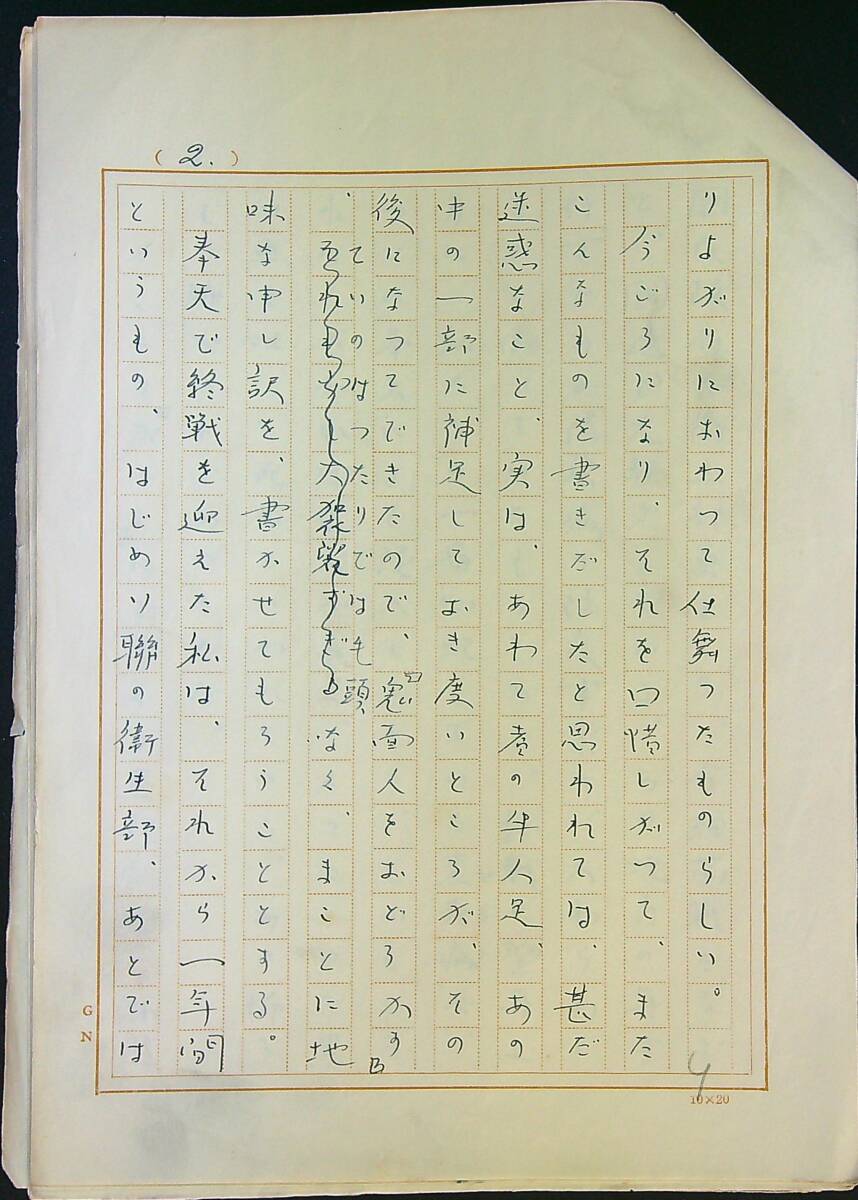 (2.)
りよがりにおわつて仕舞つたものらしい。
今ごろになり、それを口惜しがつて、また
こんなものを書きだしたと思われては、甚だ
迷惑なこと、実は、あわて者の半人足、あの
中の一部に補足しておき度いところが、その
後になつてできたので、面人をおどろかす
ていのはつたりでは毛頭、
、大袈裟すぎるなく、まことに地
味な申し訳を、書かせてもらうこととする。
奉天で終戦を迎えた私は、それから一年間
というもの、はじめソ聯の衛生部、あとでは
GN
10×20